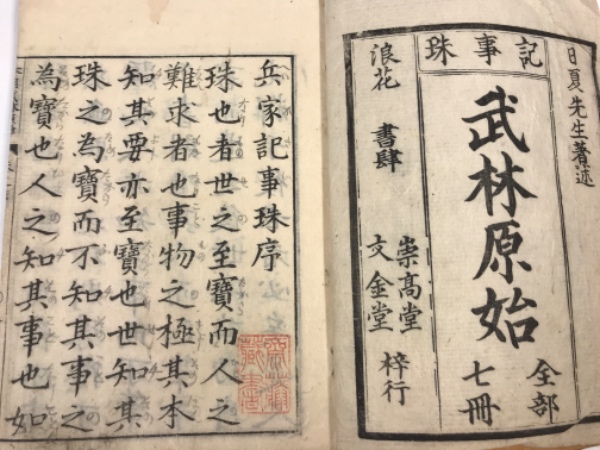 記事珠
日夏先生著述
武林原始
全部
七冊
浪花 書肆
崇高堂
文金堂
梓行
兵家記事珠序
珠也者世之至寶而人之
難求者也事物之極其本
知其要亦至寶也世知其
珠之為寶而不知其事之
為寶也人之知其事也如